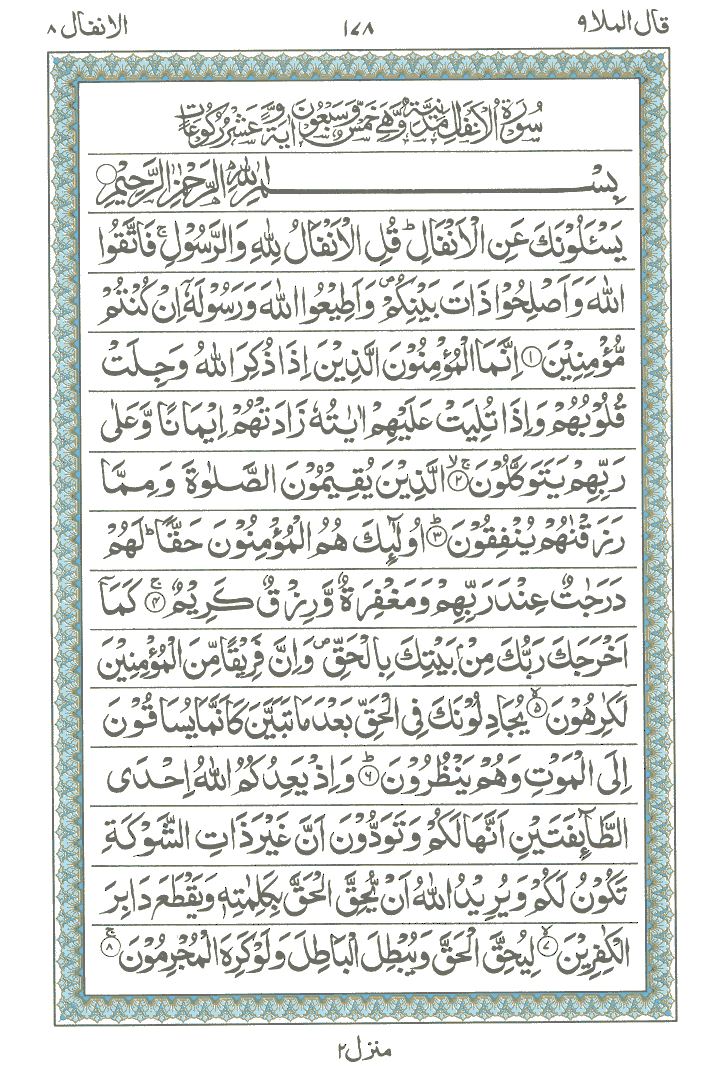 قال الملا ٩ ١٧٨ الانفال ٨
سُوْرَةُ الْاَنْفَالِ مَدَنِيَّةٌ وَّهِيَ خَمْسٌ وَّسَبْعُوْنَ اٰيَةً وَّعَشْرُ رُكُوْعَاتٍ
بِسْمِ اللّٰهِ الرَّحْمٰنِ الرَّحِيْمِ
يَسْـَٔلُوْنَكَ عَنِ الْاَنْفَالِ ؕ قُلِ الْاَنْفَالُ لِلّٰهِ وَالرَّسُوْلِ ۚ فَاتَّقُوا
اللّٰهَ وَاَصْلِحُوْا ذَاتَ بَيْنِكُمْ ۪ وَاَطِيْعُوا اللّٰهَ وَرَسُوْلَهٗۤ اِنْ كُنْتُمْ
مُّؤْمِنِيْنَ ﴿١﴾ اِنَّمَا الْمُؤْمِنُوْنَ الَّذِيْنَ اِذَا ذُكِرَ اللّٰهُ وَجِلَتْ
قُلُوْبُهُمْ وَاِذَا تُلِيَتْ عَلَيْهِمْ اٰيٰتُهٗ زَادَتْهُمْ اِيْمَانًا وَّعَلٰى
رَبِّهِمْ يَتَوَكَّلُوْنَ ﴿٢﴾ ۚۙ الَّذِيْنَ يُقِيْمُوْنَ الصَّلٰوةَ وَمِمَّا
رَزَقْنٰهُمْ يُنْفِقُوْنَ ﴿٣﴾ ؕ اُولٰٓئِكَ هُمُ الْمُؤْمِنُوْنَ حَقًّا ؕ لَهُمْ
دَرَجٰتٌ عِنْدَ رَبِّهِمْ وَمَغْفِرَةٌ وَّرِزْقٌ كَرِيْمٌ ﴿۴﴾ ۚ كَمَاۤ
اَخْرَجَكَ رَبُّكَ مِنْۢ بَيْتِكَ بِالْحَقِّ ۪ وَاِنَّ فَرِيْقًا مِّنَ الْمُؤْمِنِيْنَ
لَكٰرِهُوْنَ ﴿۵﴾ ۙ يُجَادِلُوْنَكَ فِى الْحَقِّ بَعْدَ مَا تَبَيَّنَ كَاَنَّمَا يُسَاقُوْنَ
اِلَى الْمَوْتِ وَهُمْ يَنْظُرُوْنَ ﴿٦﴾ ؕ وَاِذْ يَعِدُكُمُ اللّٰهُ اِحْدَى
الطَّآئِفَتَيْنِ اَنَّهَا لَكُمْ وَتَوَدُّوْنَ اَنَّ غَيْرَ ذَاتِ الشَّوْكَةِ
تَكُوْنُ لَكُمْ وَيُرِيْدُ اللّٰهُ اَنْ يُّحِقَّ الْحَقَّ بِكَلِمٰتِهٖ وَيَقْطَعَ دَابِرَ
الْكٰفِرِيْنَ ﴿٧﴾ ۙ لِيُحِقَّ الْحَقَّ وَيُبْطِلَ الْبَاطِلَ وَلَوْ كَرِهَ الْمُجْرِمُوْنَ ﴿٨﴾ ۚ
منزل ٢